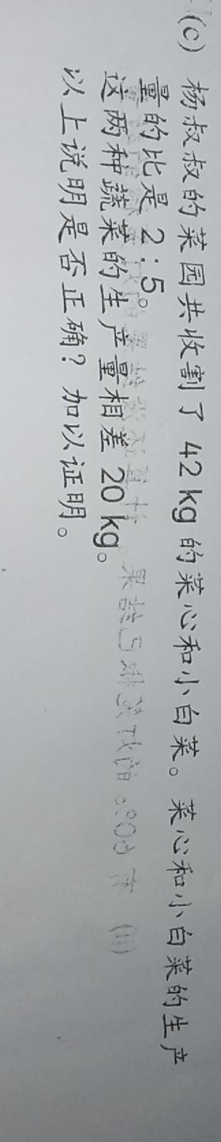 (c) 杨叔叔的菜园共收割了 42 kg 的菜心和小白菜。菜心和小白菜的生产
量的比是 2 : 5。
这两种蔬菜的生产量相差 20 kg。
以上说明是否正确？加以证明。